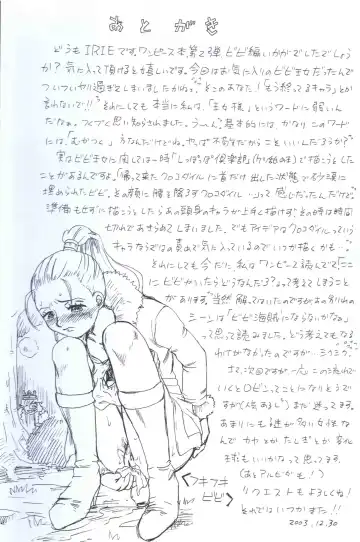 あとがき
どうもIRIEです。ワンピース本第2弾、ビビ編いかがでしたでしょう
か？気に入って頂けると嬉しいです。今回はお気に入りのビビ王女だったんで
ついついやり過ぎてしまいましたかね。そこのあなた！「そう思ってるキャラ」とか
言わないで！！それにしても本当に私は、「王女様」というワードに弱いん
だなぁ。つくづく思い知らされました。うーん、基本的には、かなりこのワード
には、「むかつく」
実はビビ王女に関しては一時「しっぽっぽ倶楽部」
ことがあるんですよ。「帰って来たクロコダイルに首だけ出した状態で砂漠に
埋められたビビ。その顔に腰を降ろすクロコダイル…」って感じだったんだけど、
準備もせずに描こうとしたらあの頭身のキャラが上手く描けず、その時は時間
切れであきらめてしまいました。でもアイデアはクロコダイルっていう
キャラならではの責めで気に入っているのでいつか描くかも…
それにしても今だに、私はワンピース読んでて「ここ
にビビがいたらどうなんだろ？」って考えてしまうこと
があります。当然、解ってはいたのですがあの別れの
シーンは「ビビ海賊にならないかな」
って思って読みました。どう考えてもなる
わけがなかったのですが…
さて、次回ですが、この流れで
いくとロビンってことになりそうで
すが(人気あるし)まだ迷ってます。
あまりにも謎が多い女性な
んで カヤとか たしぎとか 変化
球もいいかなって思ってます。
(あとアルビダも！)
リクエストもよろしくね！
それではいつかまた！！
2003.12.30
フキフキ
ビビ